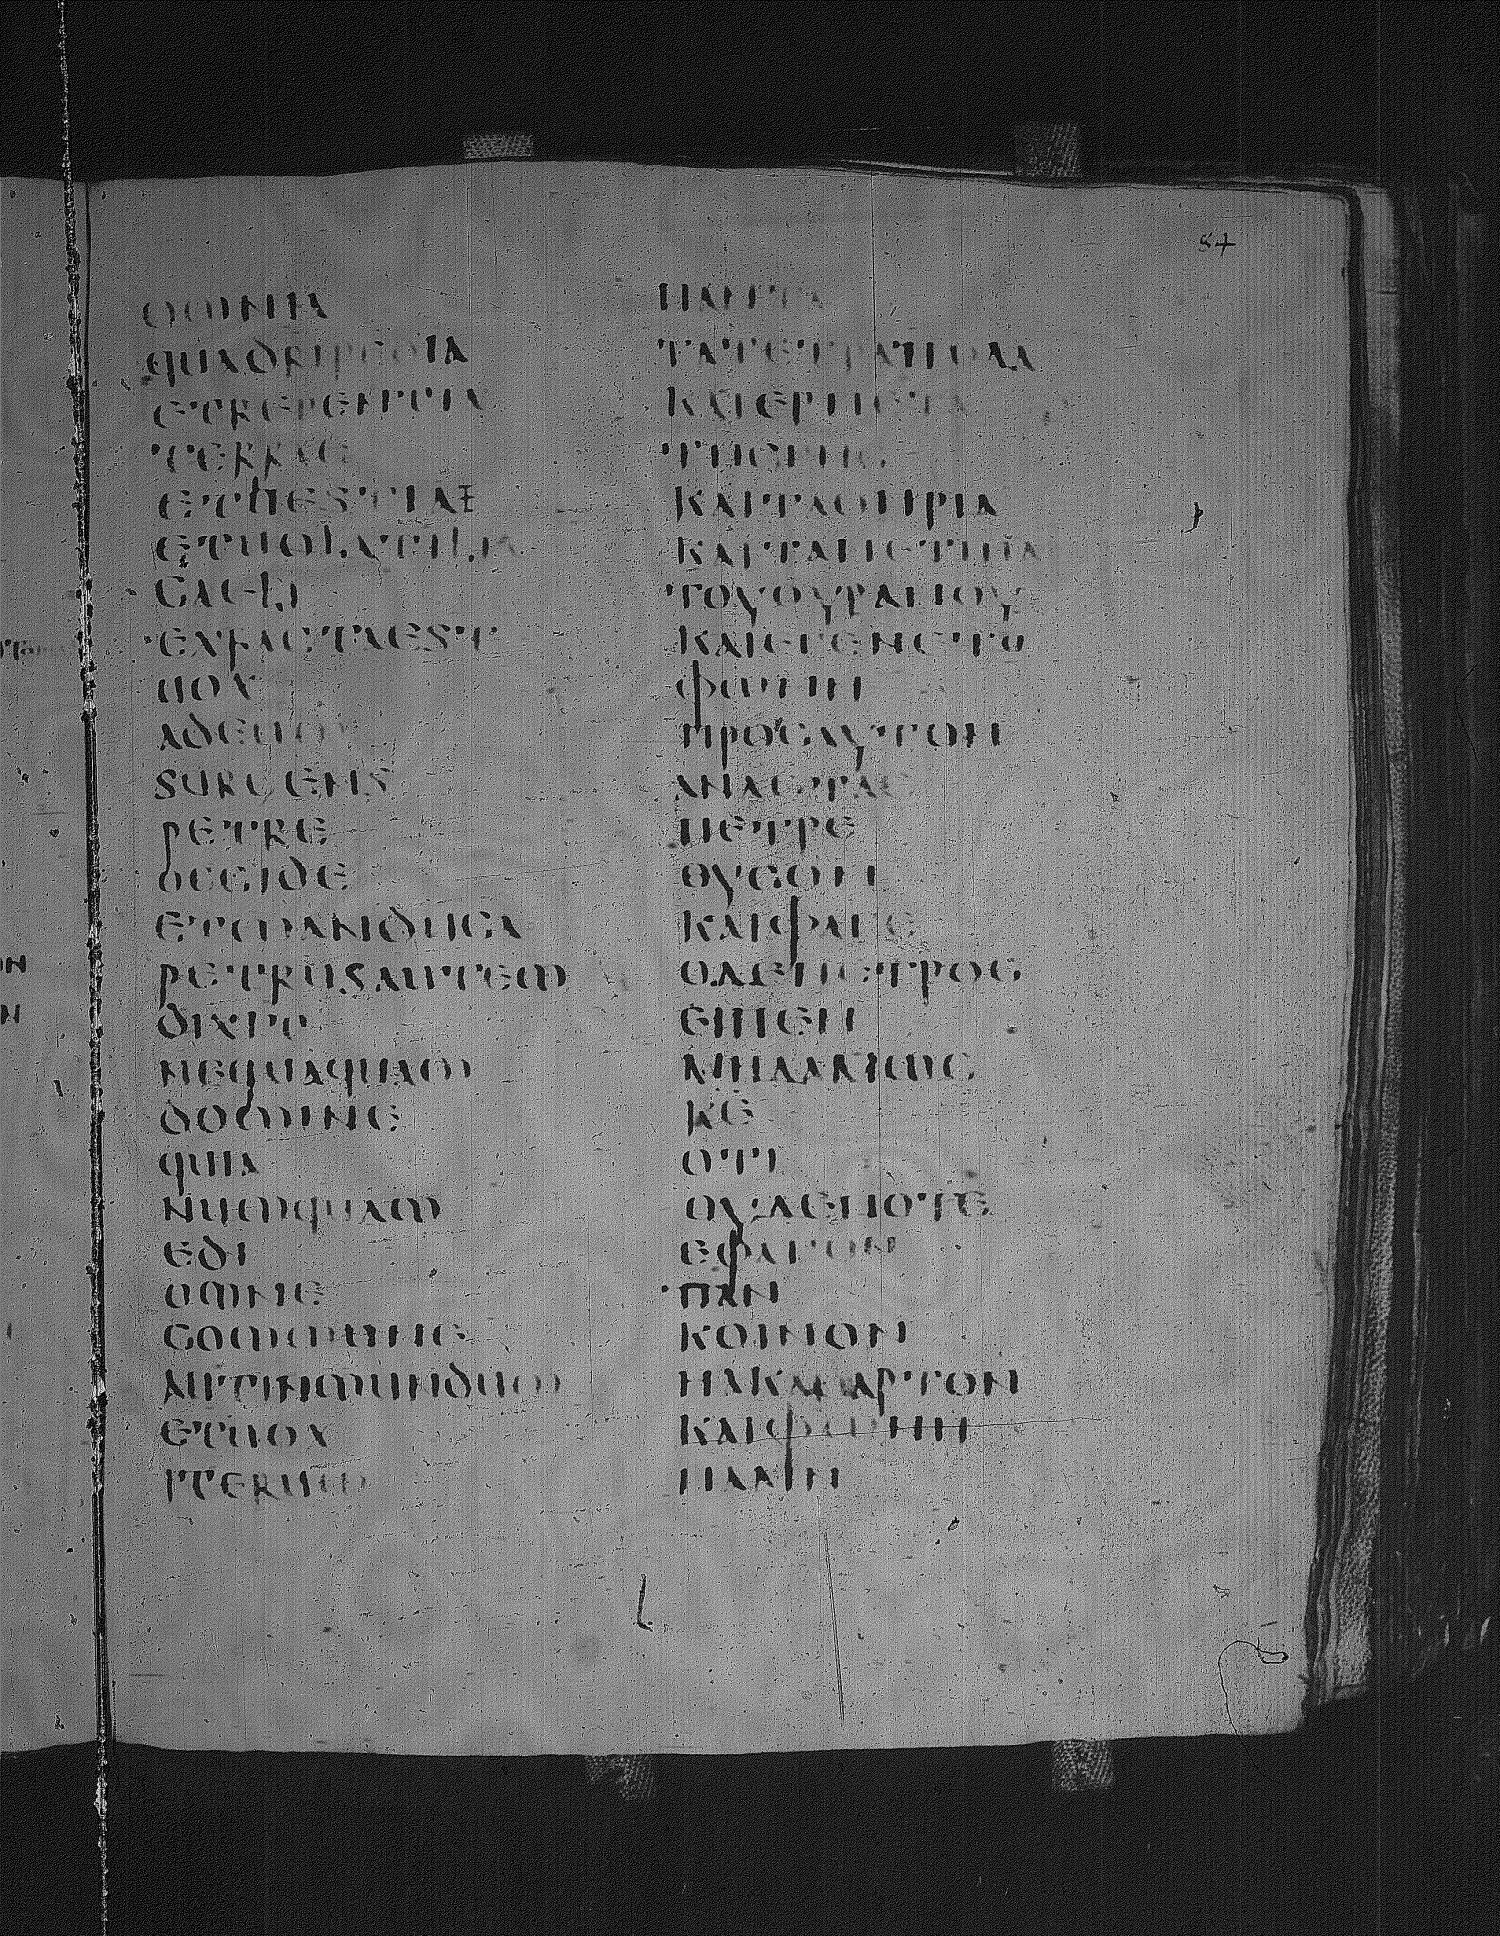 54
OMNIA
QUADRIPEDIA
ETREPENTIA
TERRAE
ETBESTIAE
ETUOLATILIA
CAELI
ETFACTAEST
UOX
ADEUM
SURGENS
PETRE
OCCIDE
ETMANDUCA
PETRUSAUTEM
DIXIT
NEQUAQUAM
DOMINE
QUIA
NUMQUAM
EDI
OMNE
COMMUNE
AUTINMUNDUM
ETUOX
ITERUM
ΠΑΝΤΑ
ΤΑΤΕΤΡΑΠΟΔΑ
ΚΑΙΕΡΠΕΤΑ
ΤΗϹΓΗϹ
ΚΑΙΤΑΘΗΡΙΑ
ΚΑΙΤΑΠΕΤΙΝΑ
ΤΟΥΟΥΡΑΝΟΥ
ΚΑΙΕΓΕΝΕΤΟ
ΦΩΝΗ
ΠΡΟϹΑΥΤΟΝ
ΑΝΑϹΤΑϹ
ΠΕΤΡΕ
ΘΥϹΟΝ
ΚΑΙΦΑΓΕ
ΟΔΕΠΕΤΡΟϹ
ΕΙΠΕΝ
ΜΗΔΑΜΩϹ
ΚΕ
ΟΤΙ
ΟΥΔΕΠΟΤΕ
ΕΦΑΓΟΝ
ΠΑΝ
ΚΟΙΝΟΝ
ΗΑΚΑΘΑΡΤΟΝ
ΚΑΙΦΩΝΗ
ΠΑΛΙΝ